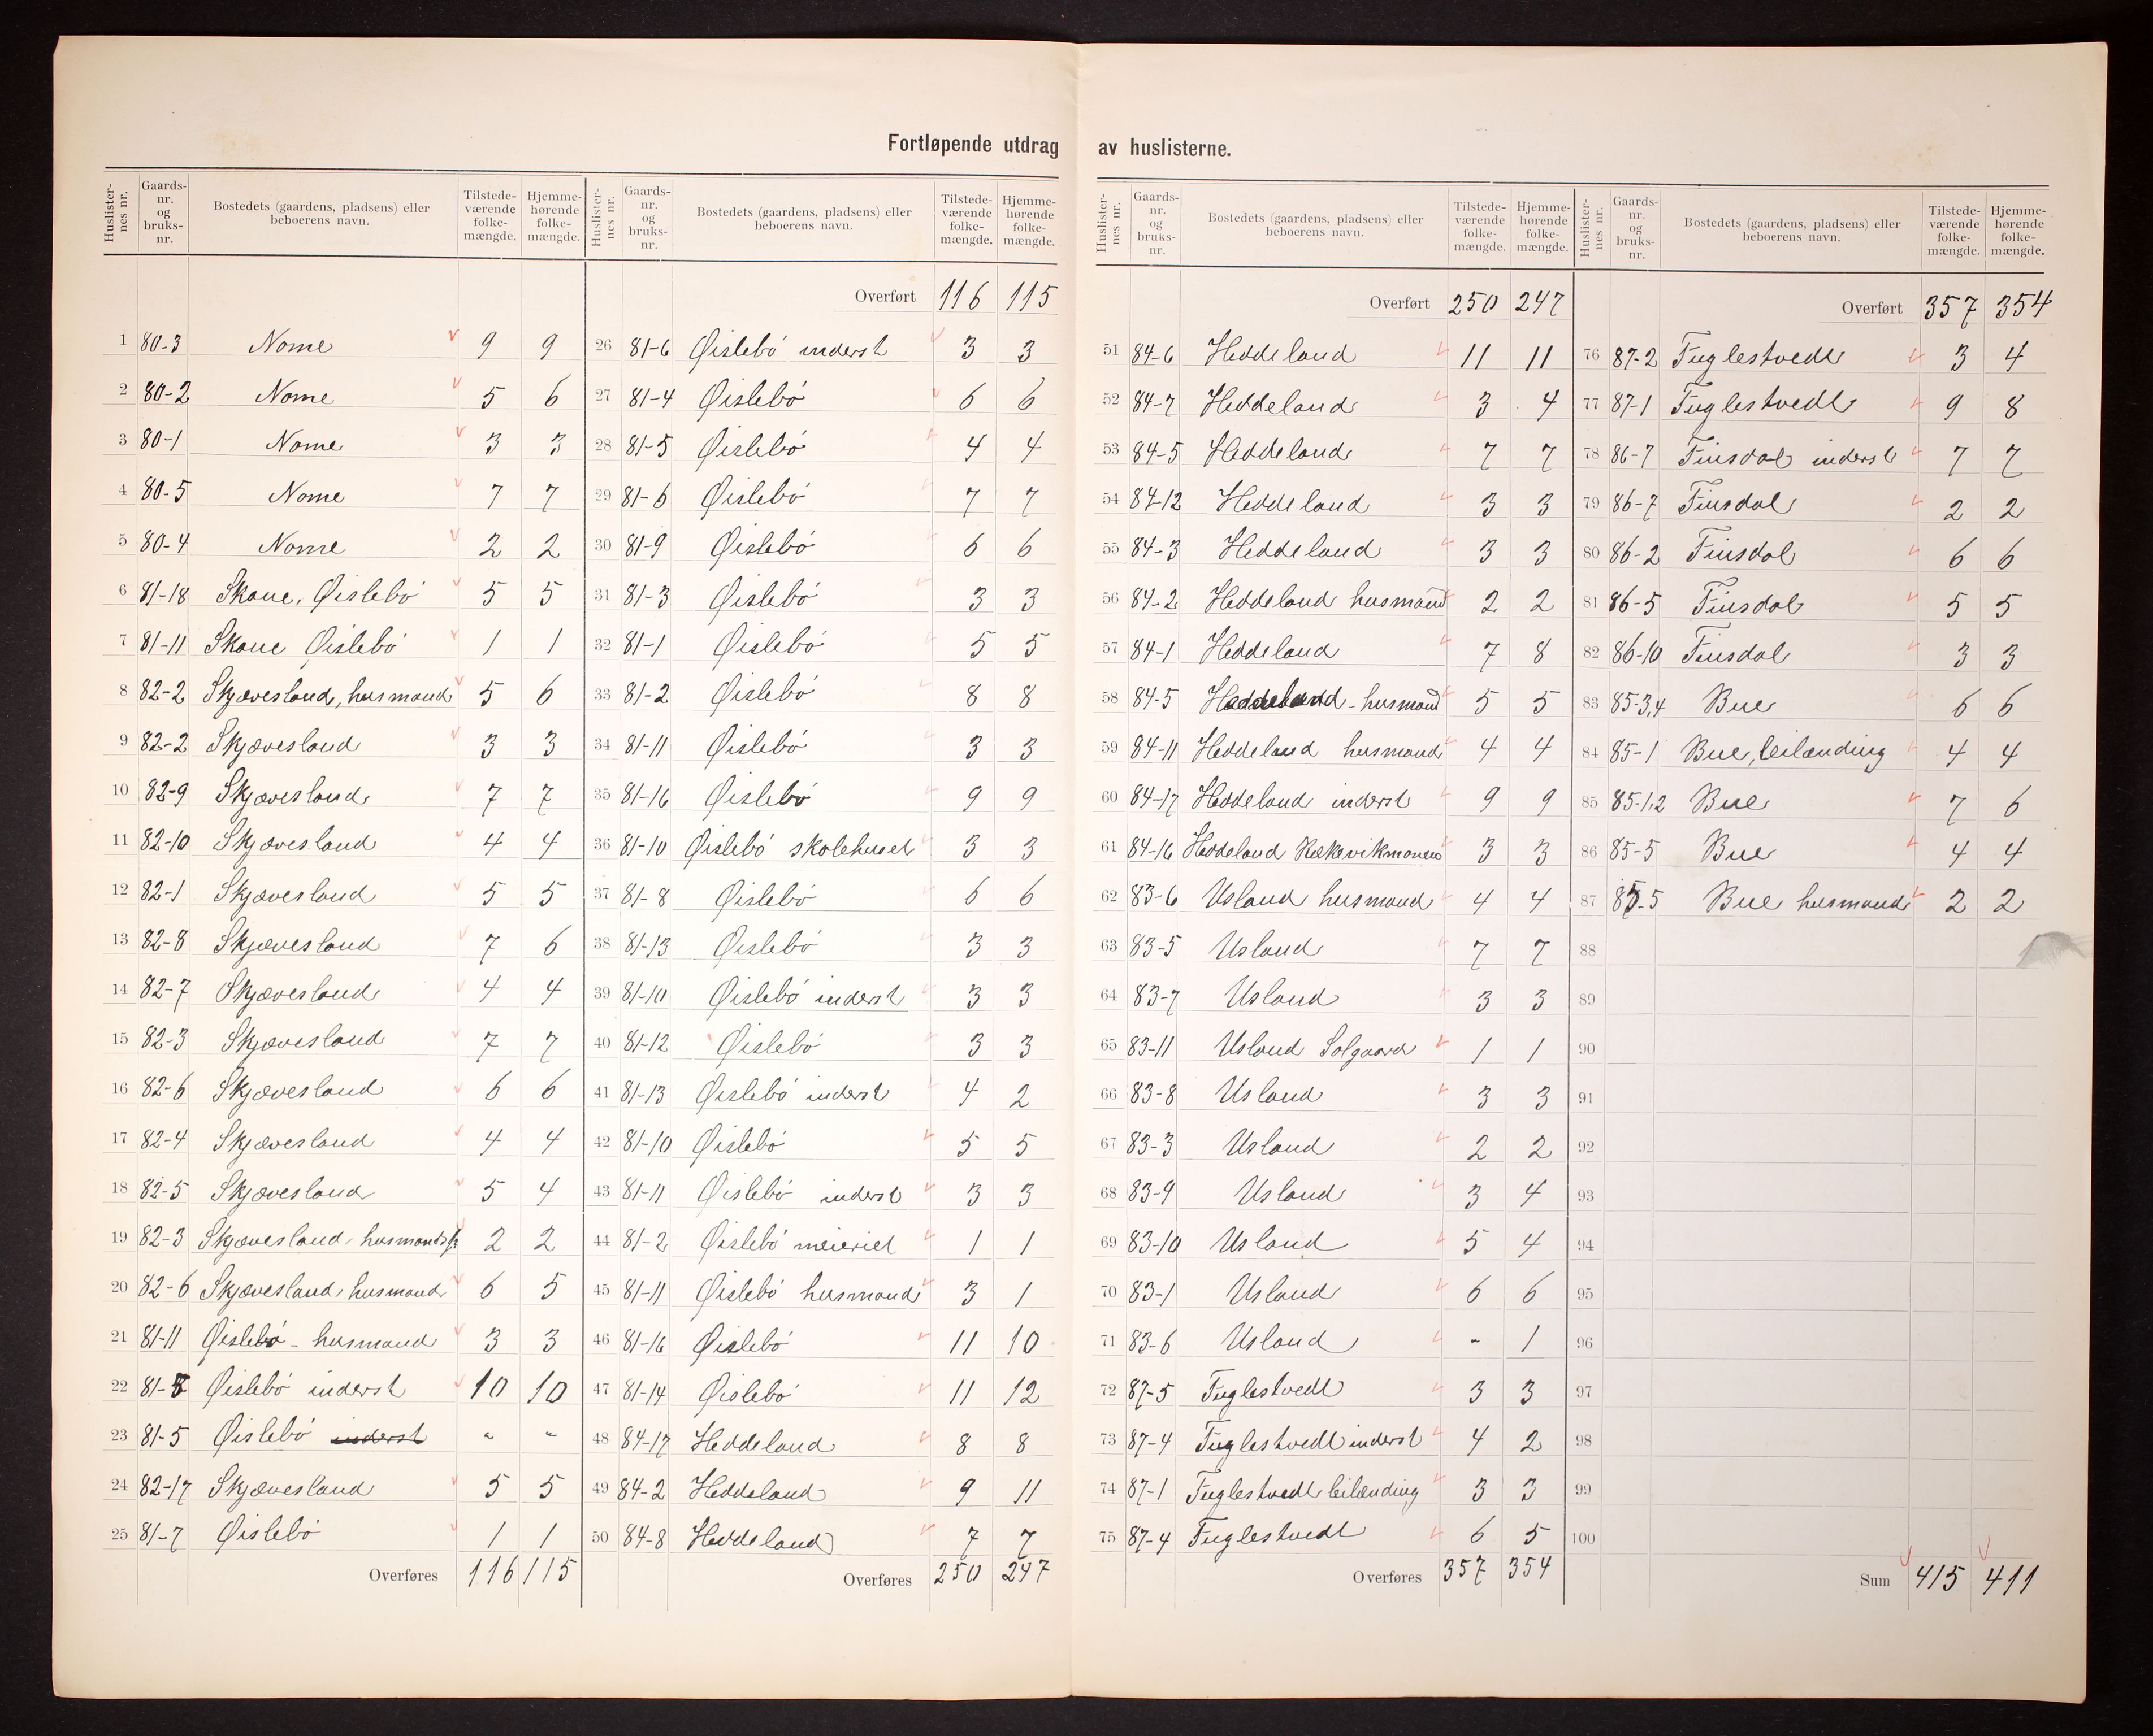 Fortløpende utdrag av huslisterne.
Huslisternes nr. Gaards-nr. og bruks-nr. Bostedets (gaardens, pladsens) eller beboerens navn. Tilstedeværende folkemængde. Hjemmehørende folkemængde.
1 80-3 Nome 9 9
2 80-2 Nome 5 6
3 80-1 Nome 3 3
4 80-5 Nome 7 7
5 80-4 Nome 2 2
6 81-18 Skaue, Øislebö 5 5
7 81-11 Skaue Øislebö 1 1
8 82-2 Skjævesland, husmand 5 6
9 82-2 Skjævesland 3 3
10 82-9 Skjævesland 7 7
11 82-10 Skjævesland 4 4
12 82-1 Skjævesland 5 5
13 82-8 Skjævesland 7 6
14 82-7 Skjævesland 4 4
15 82-3 Skjævesland 7 7
16 82-6 Skjævesland 6 6
17 82-4 Skjævesland 4 4
18 82-5 Skjævesland 5 4
19 82-3 Skjævesland, husmandspl 2 2
20 82-6 Skjævesland, husmand 6 5
21 81-11 Øislebö - husmand 3 3
22 81-8 Øislebö inderst 10 10
23 81-5 Øislebö inderst " "
24 82-17 Skjævesland 5 5
25 81-7 Øislebö 1 1
Overføres 116 115
Huslisternes nr. Gaards-nr. og bruks-nr. Bostedets (gaardens, pladsens) eller beboerens navn. Tilstedeværende folkemængde. Hjemmehørende folkemængde.
Overført 116 115
26 81-6 Øislebö inderst 3 3
27 81-4 Øislebö 6 6
28 81-5 Øislebö 4 4
29 81-6 Øislebö 7 7
30 81-9 Øislebö 6 6
31 81-3 Øislebö 3 3
32 81-1 Øislebö 5 5
33 81-2 Øislebö 8 8
34 81-11 Øislebö 3 3
35 81-16 Øislebö 9 9
36 81-10 Øislebö skolehuset 3 3
37 81-8 Øislebö 6 6
38 81-13 Øislebö 3 3
39 81-10 Øislebö inderst 3 3
40 81-12 Øislebö 3 3
41 81-13 Øislebö inderst 4 2
42 81-10 Øislebö 5 5
43 81-11 Øislebö inderst 3 3
44 81-2 Øislebö meieriet 1 1
45 81-11 Øislebö husmand 3 1
46 81-16 Øislebö 11 10
47 81-14 Øislebö 11 12
48 84-17 Heddeland 8 8
49 84-2 Heddeland 9 11
50 84-8 Heddeland 7 7
Overføres 250 247
Huslisternes nr. Gaards-nr. og bruks-nr. Bostedets (gaardens, pladsens) eller beboerens navn. Tilstedeværende folkemængde. Hjemmehørende folkemængde.
Overført 250 247
51 84-6 Heddeland 11 11
52 84-7 Heddeland 3 4
53 84-5 Heddeland 7 7
54 84-12 Heddeland 3 3
55 84-3 Heddeland 3 3
56 84-2 Heddeland husmand 2 2
57 84-1 Heddeland 7 8
58 84-5 Heddeland - husmand 5 5
59 84-11 Heddeland husmand 4 4
60 84-17 Heddeland inderst 9 9
61 84-16 Heddeland Rækevikmonen 3 3
62 83-6 Usland husmand 4 4
63 83-5 Usland 7 7
64 83-7 Usland 3 3
65 83-11 Usland Solgaard 1 1
66 83-8 Usland 3 3
67 83-3 Usland 2 2
68 83-9 Usland 3 4
69 83-10 Usland 5 4
70 83-1 Usland 6 6
71 83-6 Usland " 1
72 87-5 Fuglestvedt 3 3
73 87-4 Fuglestvedt inderst 4 2
74 87-1 Fuglestvedt leilænding 3 3
75 87-4 Fuglestvedt 6 5
Overføres 357 354
Huslisternes nr. Gaards-nr. og bruks-nr. Bostedets (gaardens, pladsens) eller beboerens navn. Tilstedeværende folkemængde. Hjemmehørende folkemængde.
Overført 357 354
76 87-2 Fuglestvedt 3 4
77 87-1 Fuglestvedt 9 8
78 86-7 Finsdal inderst 7 7
79 86-7 Finsdal 2 2
80 86-2 Finsdal 6 6
81 86-5 Finsdal 5 5
82 86-10 Finsdal 3 3
83 85-3,4 Bue 6 6
84 85-1 Bue, leilænding 4 4
85 85-1,2 Bue 7 6
86 85-5 Bue 4 4
87 85-5 Bue husmand 2 2
88
89
90
91
92
93
94
95
96
97
98
99
100
Sum 415 411